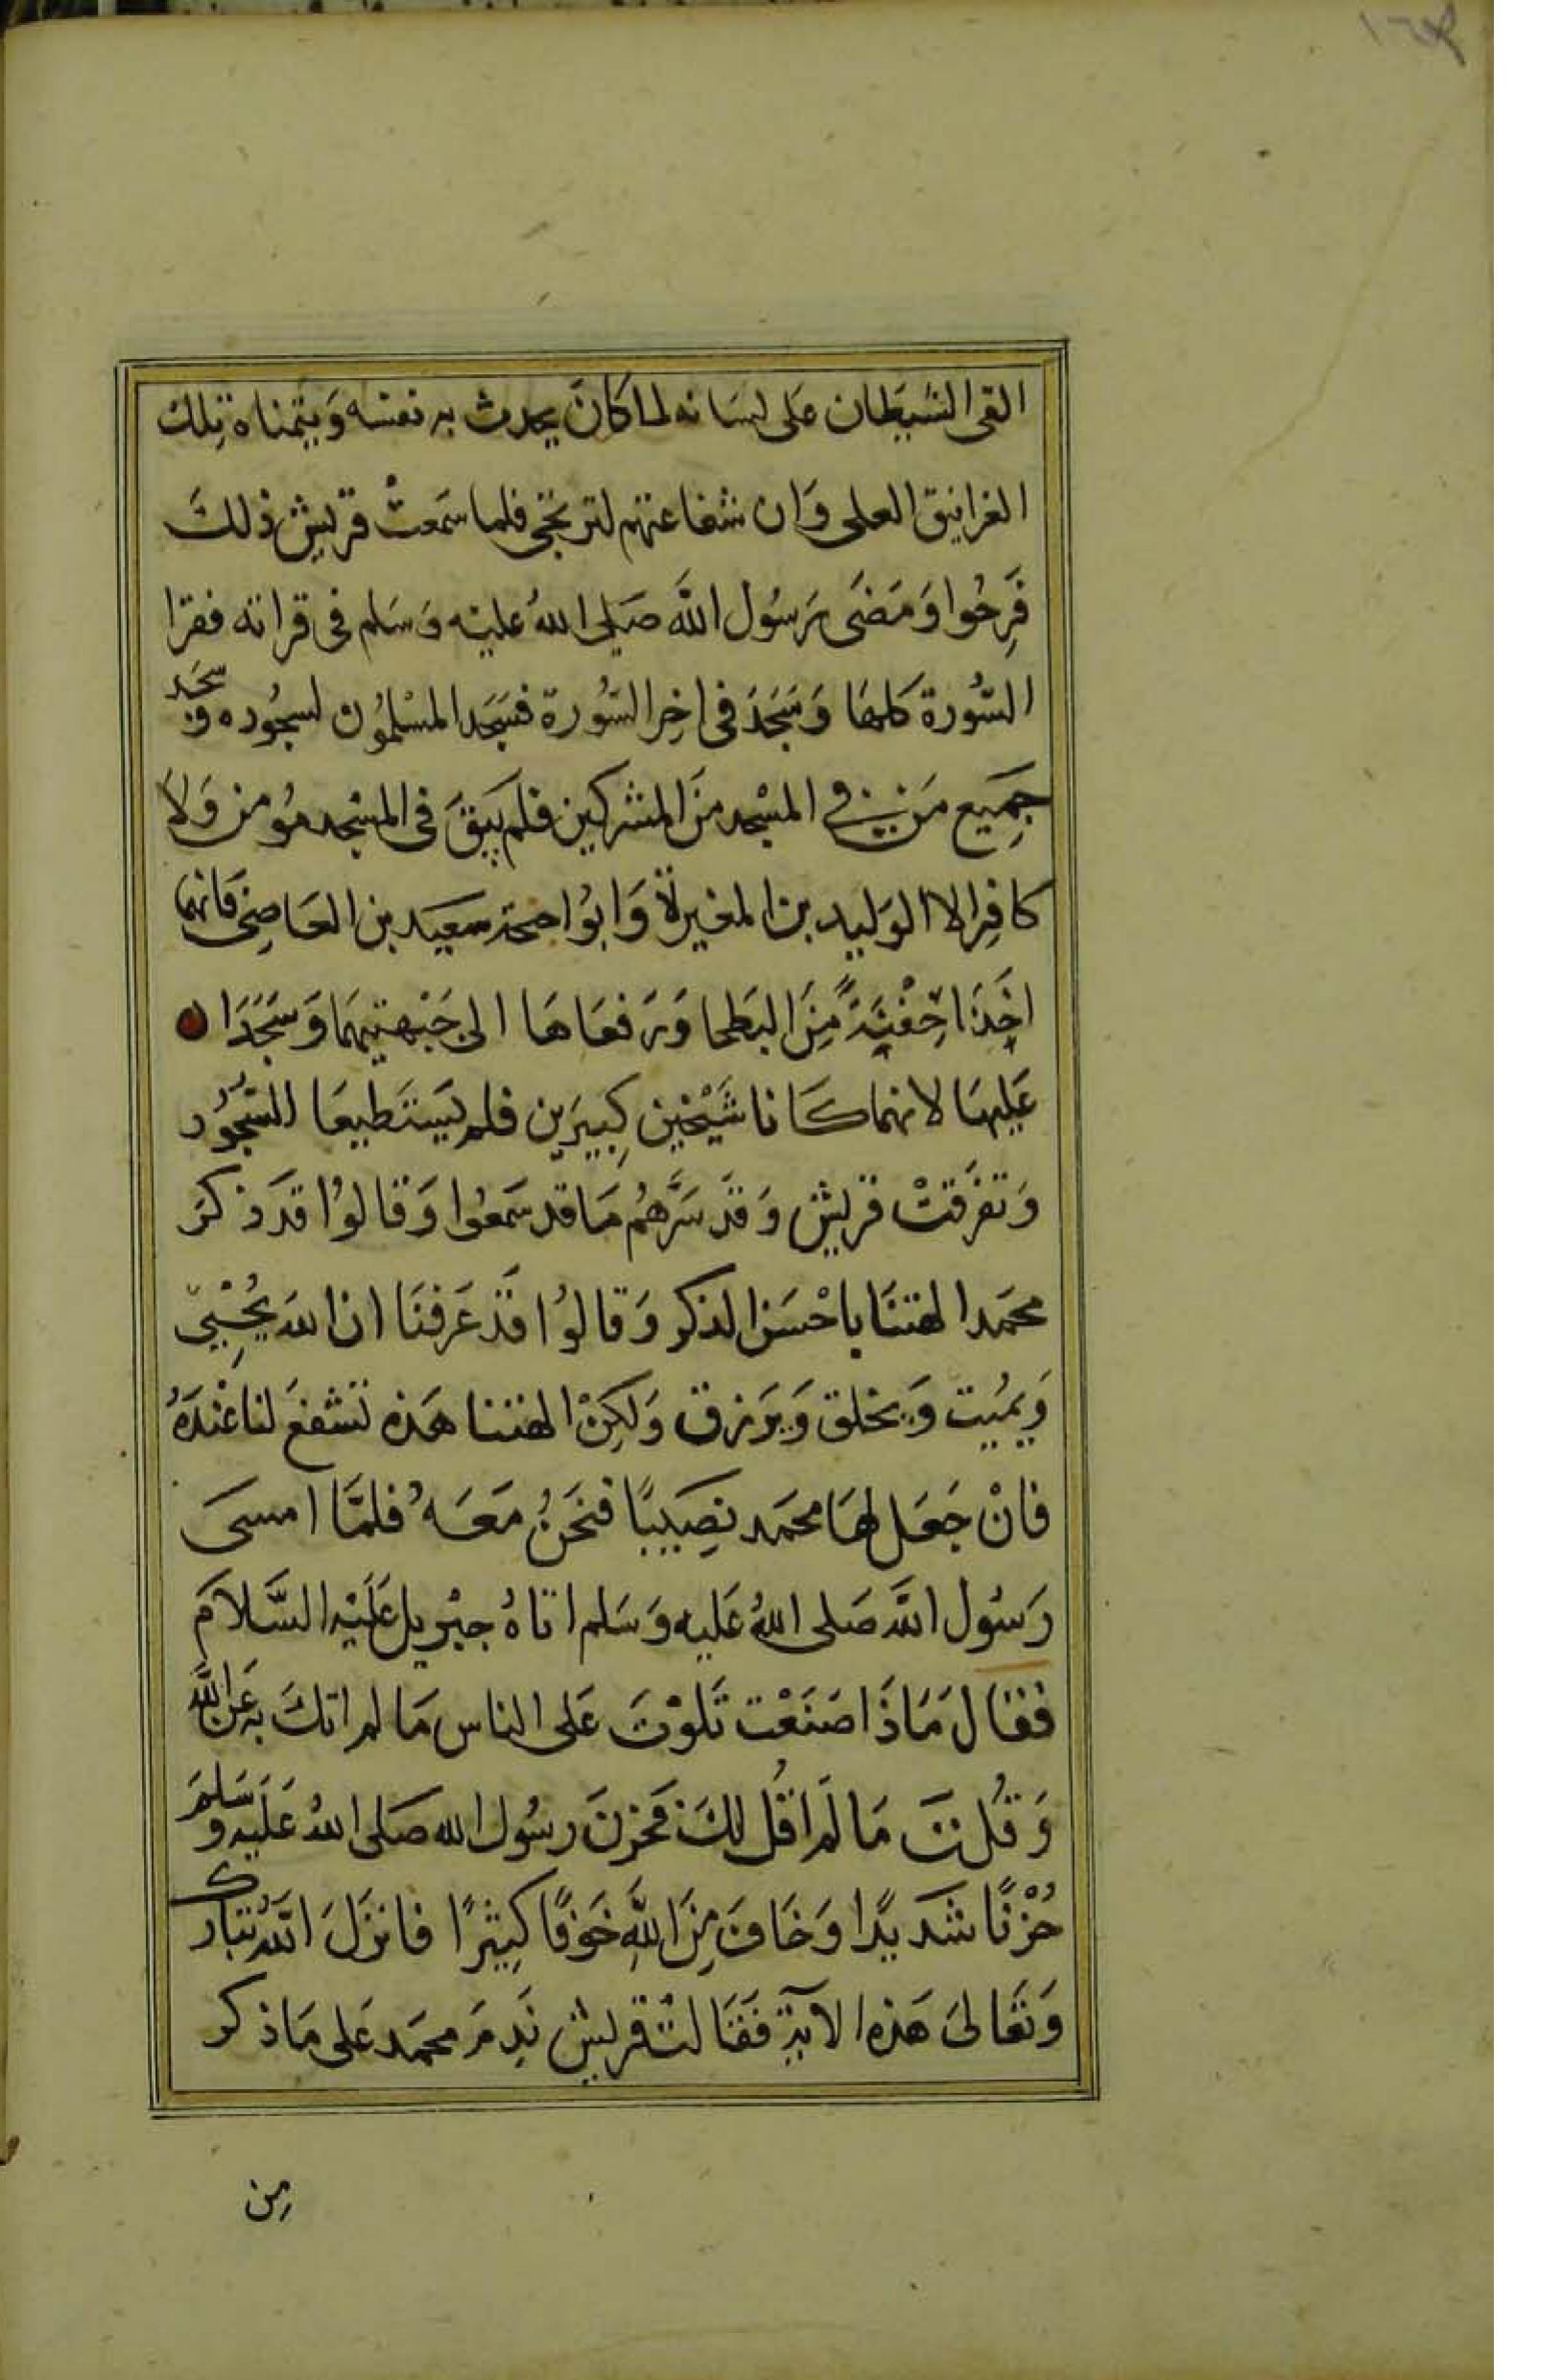 القى الشيطان على لسانه لما كان يحدث به نفسه وَيتمناه تِلك
الغرانيق العلى وَان شفاعتهم لترتجى فلما سَمعتْ قريش ذلكَ
فَرِحُوا وَمَضَى رَسُول اللَّه صَلى اللهُ عليْه وَسَلم فى قراته فقرا
السُّورة كلهَا وَسَجَدَ فى اخِر السُّورة فسَجَد المسْلمُون لسجُوده وَسَجَد
جَمِيع مَن في المسْجد منَ المشركين فلم يَبقَ فى المسْجد مُومن وَلاَ
كافِر الا الوَليد بن المغيرة وَابوُ احيحة سَعيد بن العَاصِى فانهما
اخَذا حِفْنَةً مِنَ البَطحا وَرَفعَاهَا الى جَبْهتيهِمَا وَسَجَدَا
عَليهَا لانهما كانا شَيْخَيْن كِبيرَين فلم يَستَطيعَا السُّجُود
وَتفرَقتْ قريش وَقَد سَرَّهُم مَا قد سَمعُوا وَقالوُا قدَ ذكرَ
محمَد الهتنَا باحْسَن الذكر وَقالوُا قَد عَرَفنَا ان اللهَ يُحْيِي
وَيمُيت وَيخلق وَيَرزق وَلكِنْ الهتنا هَذه تشفعَ لنا عْندَهُ
فانْ جَعَل لهَا محمَد نصِيبًا فنحَنُ مَعَهُ فلمَّا امسَى
رَسُول اللَّه صَلى اللهُ عَليه وَسَلم اتاهُ جبْريل عَليْه السَّلامَ
فقال مَاذَا صَنَعْت تَلوْتَ عَلى الناس مَا لم اتكَ به عَن اللَّه
وَقُلتَ مَا لَم اقُل لكَ فحَزنَ رسُول الله صَلى اللهُ عَليَه وَسَلم
حُزْنًا شَديدًا وَخَافَ مِنَ اللَّهِ خَوفًا كِثيرًا فانزَلَ اللَّهُ تبَارك
وَتعَالىَ هَذه الآيَةِ فَقَالتْ قريش نَدِمَ محمَد عَلى مَا ذكر
مِن